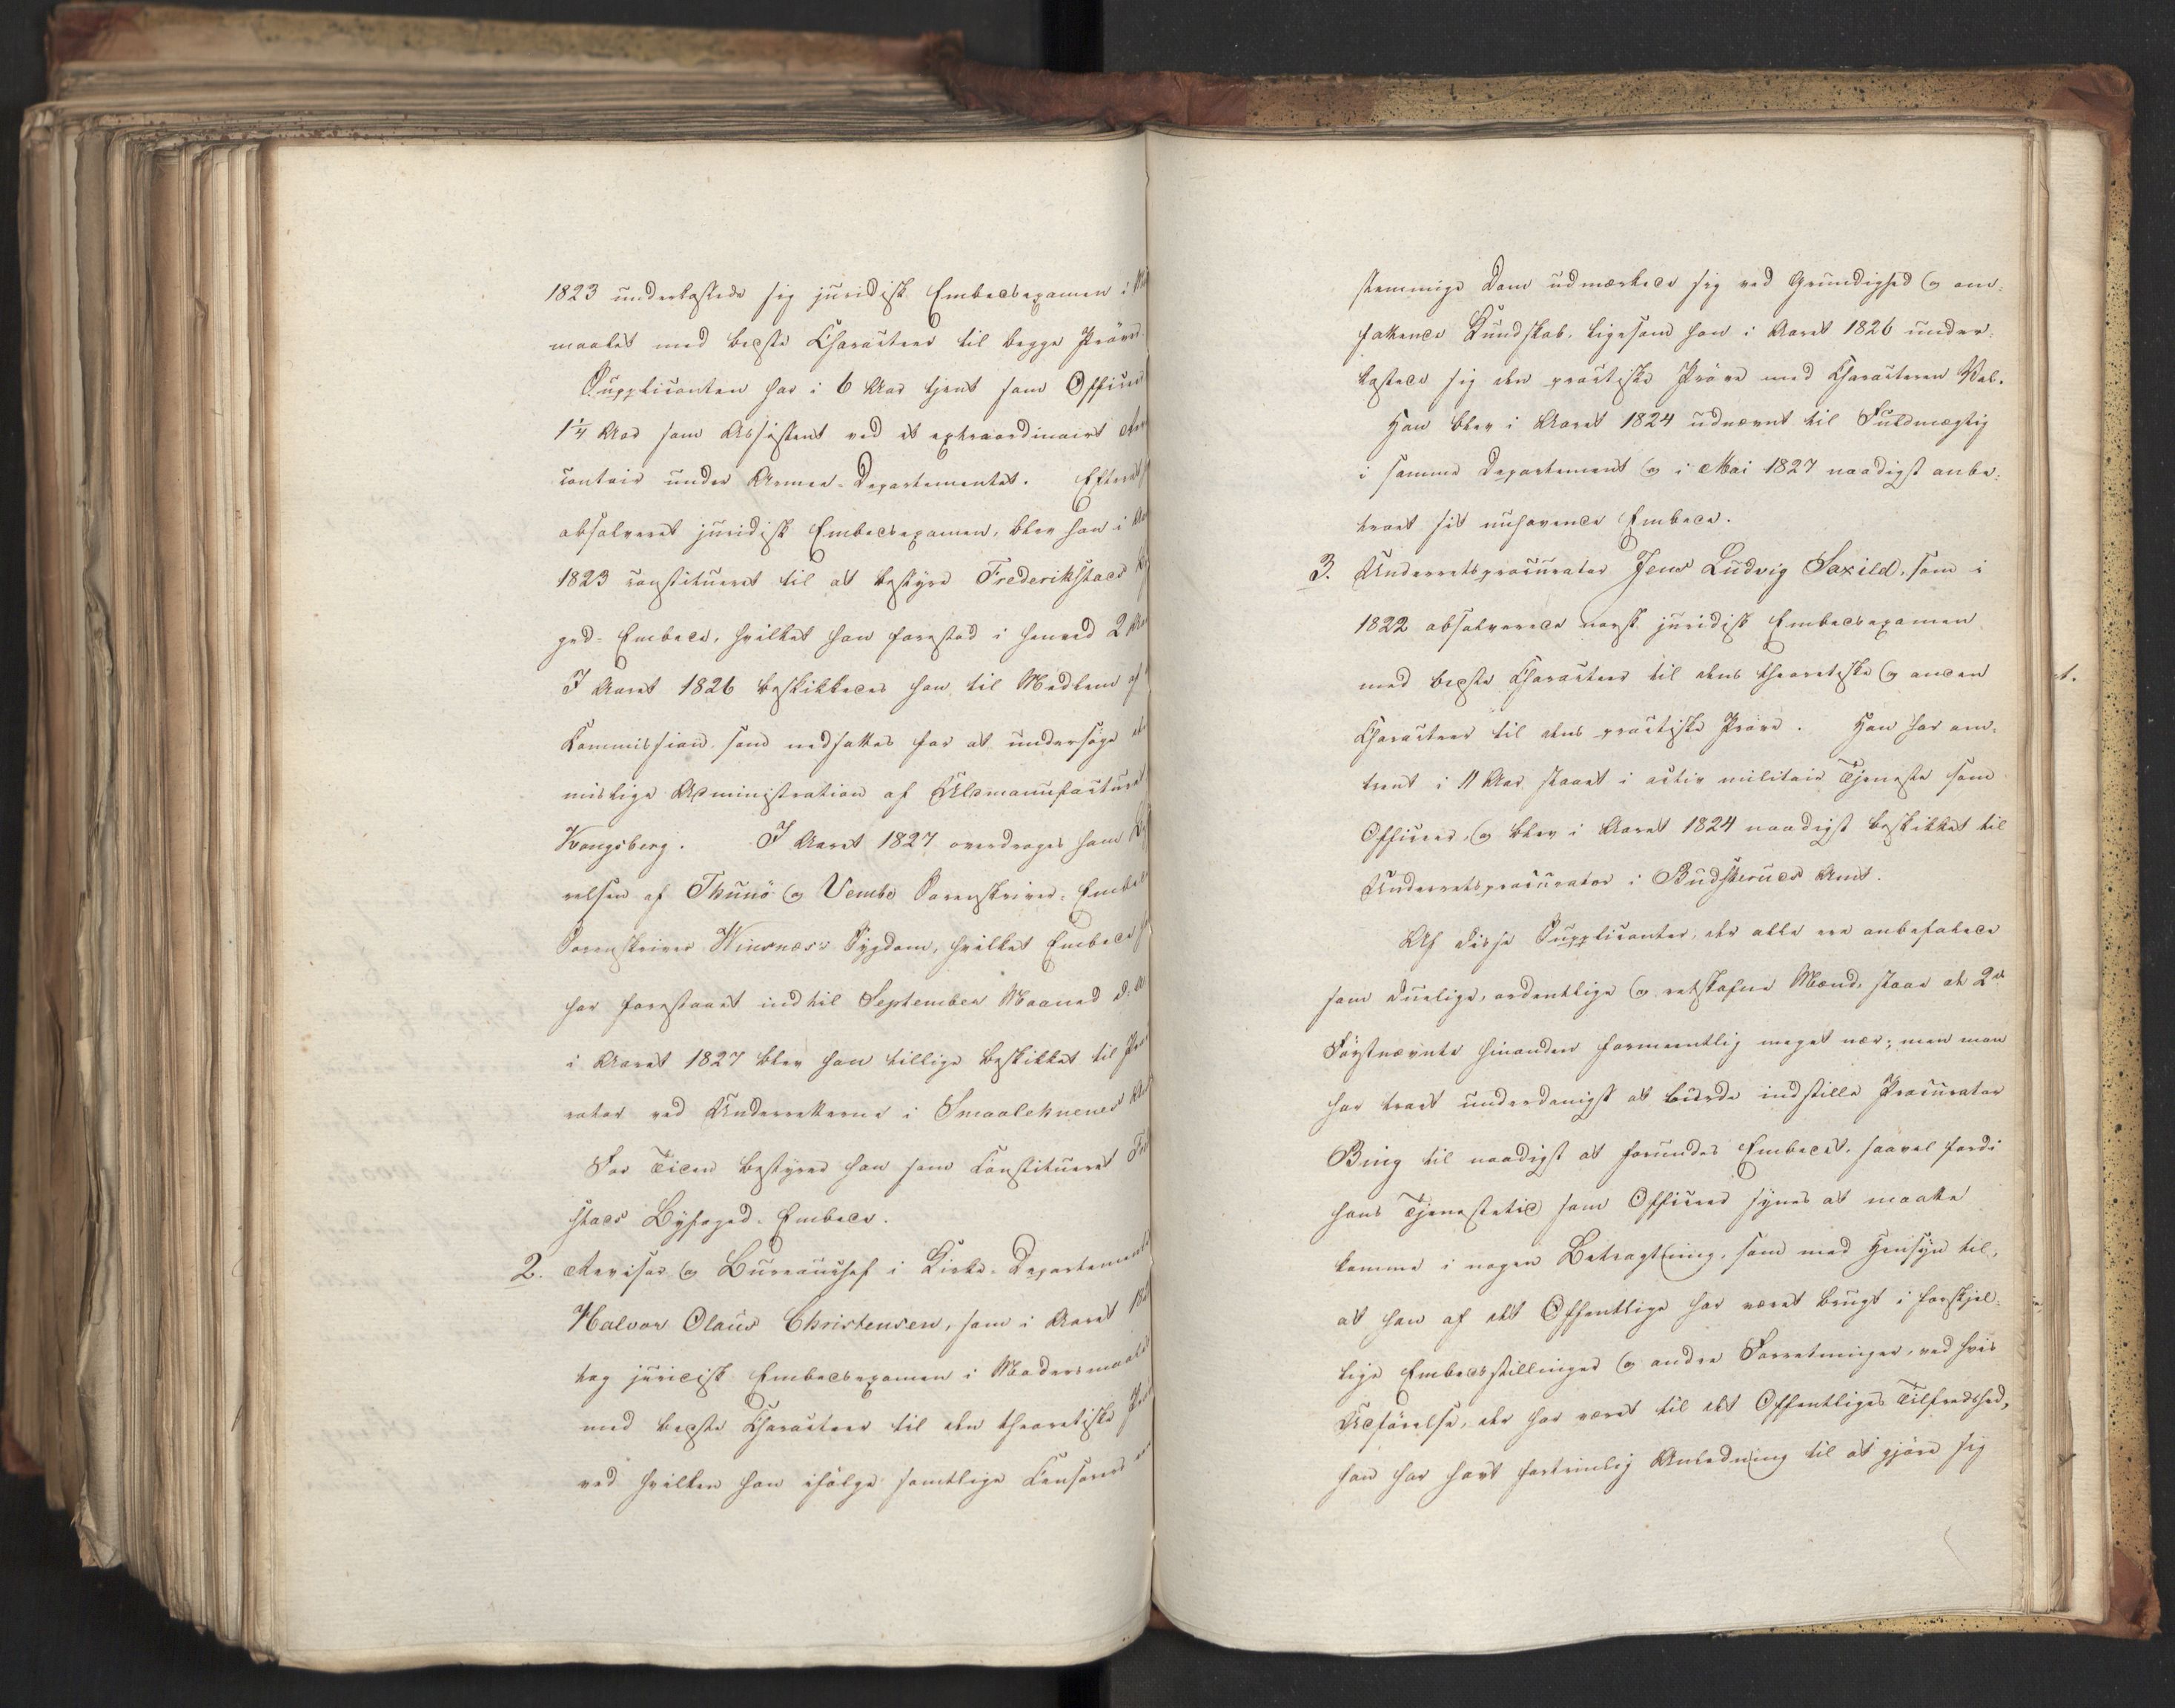 1823 underkastede sig juridisk Embedsexamen i
maalet med bedste Charakteer til begge Pröver.
Supplicanten har i 6 Aar tjent som Officeer
1¼ Aar som Assistent ved et extraordinairt
contoir under Armee-Departementet. Efter
absolveret juridisk Embedsexamen, blev han i
1823 constitueret til at bestyre Frederikstads
ged-Embede, hvilket han forestod i henved 2
I Aaret 1826 beskikkedes han til Medlem af
Commission som nedsattes for at undersöge
mislige Administration af Uldmanufacturet
Kongsberg. I Aaret 1827 overdroges ham
relsen af Thunö og Vembe Sorenskriver-Embede
Sorenskriver Wiesnæs's Sygdom, hvilket Embede
har forestaaet indtil September Maaned d. A.
i Aaret 1827 blev han tillige beskikket til
rator ved Underretterne i Smaalehnenes
For Tiden bestyrer han som Constitueret
stads Byfoged-Embede.
2. Revisor og Bureauchef i Kirke-Departementet
Halvor Olaus Christensen, som i Aaret
tog juridisk Embedsexamen i Modersmaalet
med bedste Charakteer til den theoretiske
ved hvilken han ifölge samtlige Censorers
stemmige Dom udmærkede sig ved Grundighed og om-
fattende Kundskab, ligesom han i Aaret 1826 under-
kastede sig den practiske Pröve med Charakteren Vel.
Han blev i Aaret 1824 udnævnt til Fuldmægtig
i samme Departement og i Mai 1827 naadigst anbe-
troet sit nuhavende Embede.
3. Underretsprocurator Jens Ludvig Saxild, som i
1822 absolverede norsk juridisk Embedsexamen
med bedste Charakteer til dens theoretiske og anden
Charakteer til dens practiske Pröve. Han har om-
trent i 11 Aar staaet i activ militair Tjeneste som
Officeer, og blev i Aaret 1824 naadigst beskikket til
Underretsprocurator i Budskeruds Amt.
Af disse Supplicanter, der alle ere anbefalede
som duelige, ordentlige og retskafne Mænd, staae de 2de
Förstnævnte hinanden formeentlig meget nær; men man
har troet underdanigst at burde indstille Procurator
Bing til naadigst at forundes Embedet, saavel fordi
hans Tjenestetid som Officeer synes at maatte
komme i nogen Betragtning, som med Hensyn til,
at han af det Offentlige har været brugt i forskjel-
lige Embedsstillinger og andre Forretninger, ved hvis
Udförelse, der har været til det Offentliges Tilfredshed,
han har havt fortrinlig Anledning til at gjöre sig